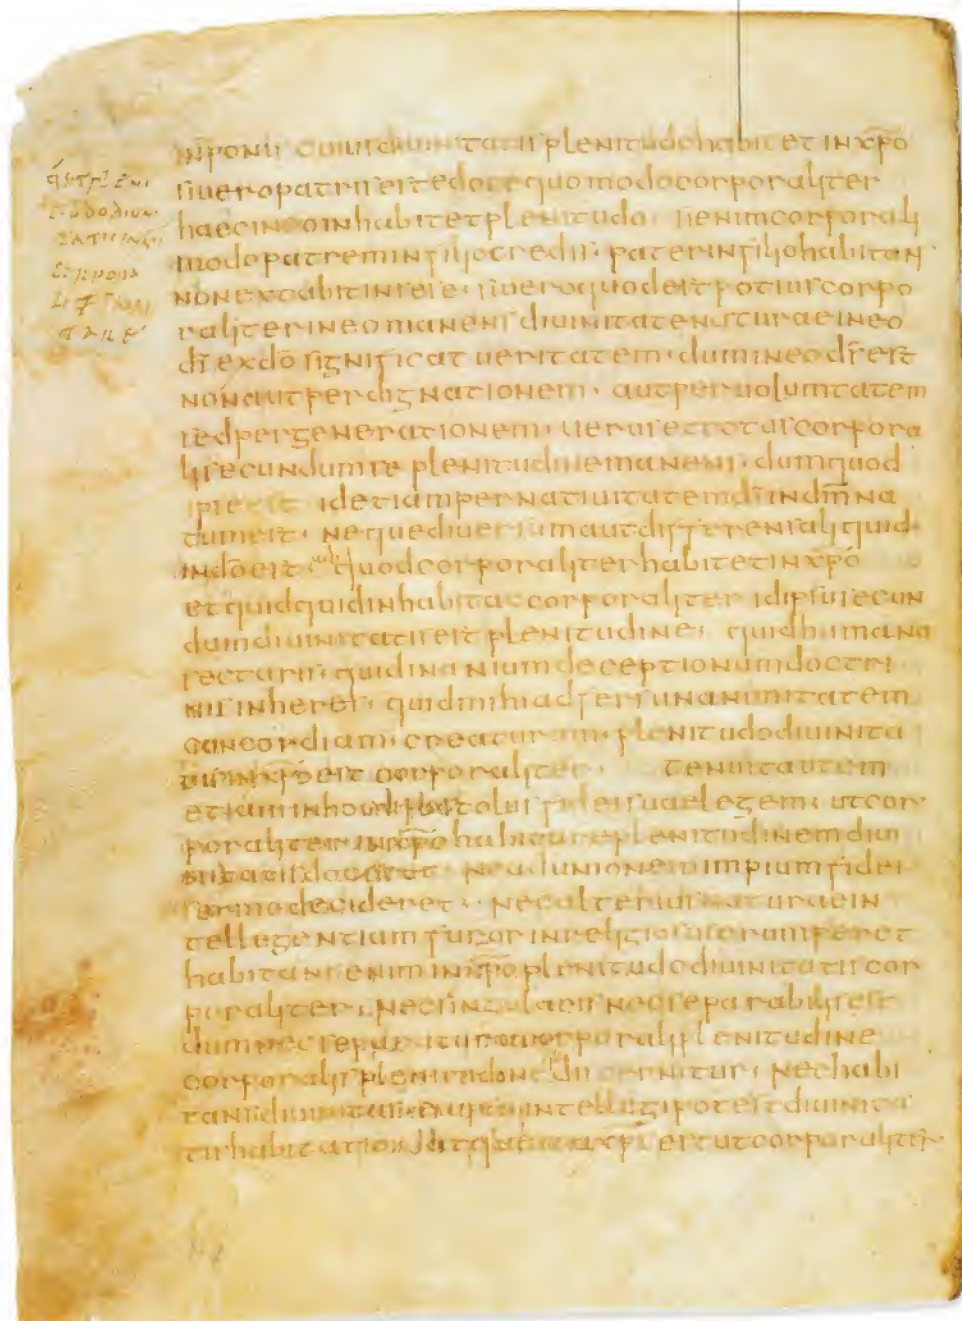 cuius diuinitatis plenitudo habitet in xp̄o
si uero patris est edoce quomodo corporaliter
haec in eo inhabitet plenitudo · si enim corporali
modo patrem in filio credis · pater in filio habitans
non extabit in se se · si uero quod est potius corpo
raliter in eo manens diuinitate naturae in eo
dī ex dō significat ueritatem · dum in eo ds̄ est
non aut per dignationem · aut per uolumtatem
sed per generationem · uerus et totus corpora
li secundum se plenitudine manens · dum quod
ipse est id etiam per natiuitatem dī in dm̄ na
tum est · neque diuersum aut differens aliquid
in dō est quod corporaliter habitet in xp̄o
et quidquid inhabitat corporaliter id ipsut secun
dum diuinitatis est plenitudine · quid humana
sectaris · quid inanium deceptionum doctri
nis inheres · quid mihi adfers unanimitatem
concordiam creaturam · plenitudo diuinita
tis in xp̄o est corporaliter · tenuit autem
etiam in hoc apostolus fidei suae legem · ut cor
poraliter in xp̄o habitare plenitudinem diui
nitatis doceret · ne ad unionem impium fidei
sermo decideret · ne alterius naturae in
tellegentiam furor inreligiosus erumperet
habitans enim in xp̄o plenitudo diuinitatis cor
poraliter · nec singularis nec separabilis est
dum nec separ corporali plenitudine
corporalis plenitudo cernitur · nec habi
tans diuinitas intellegi potest diuinita
tis habitatio est ut corporaliter